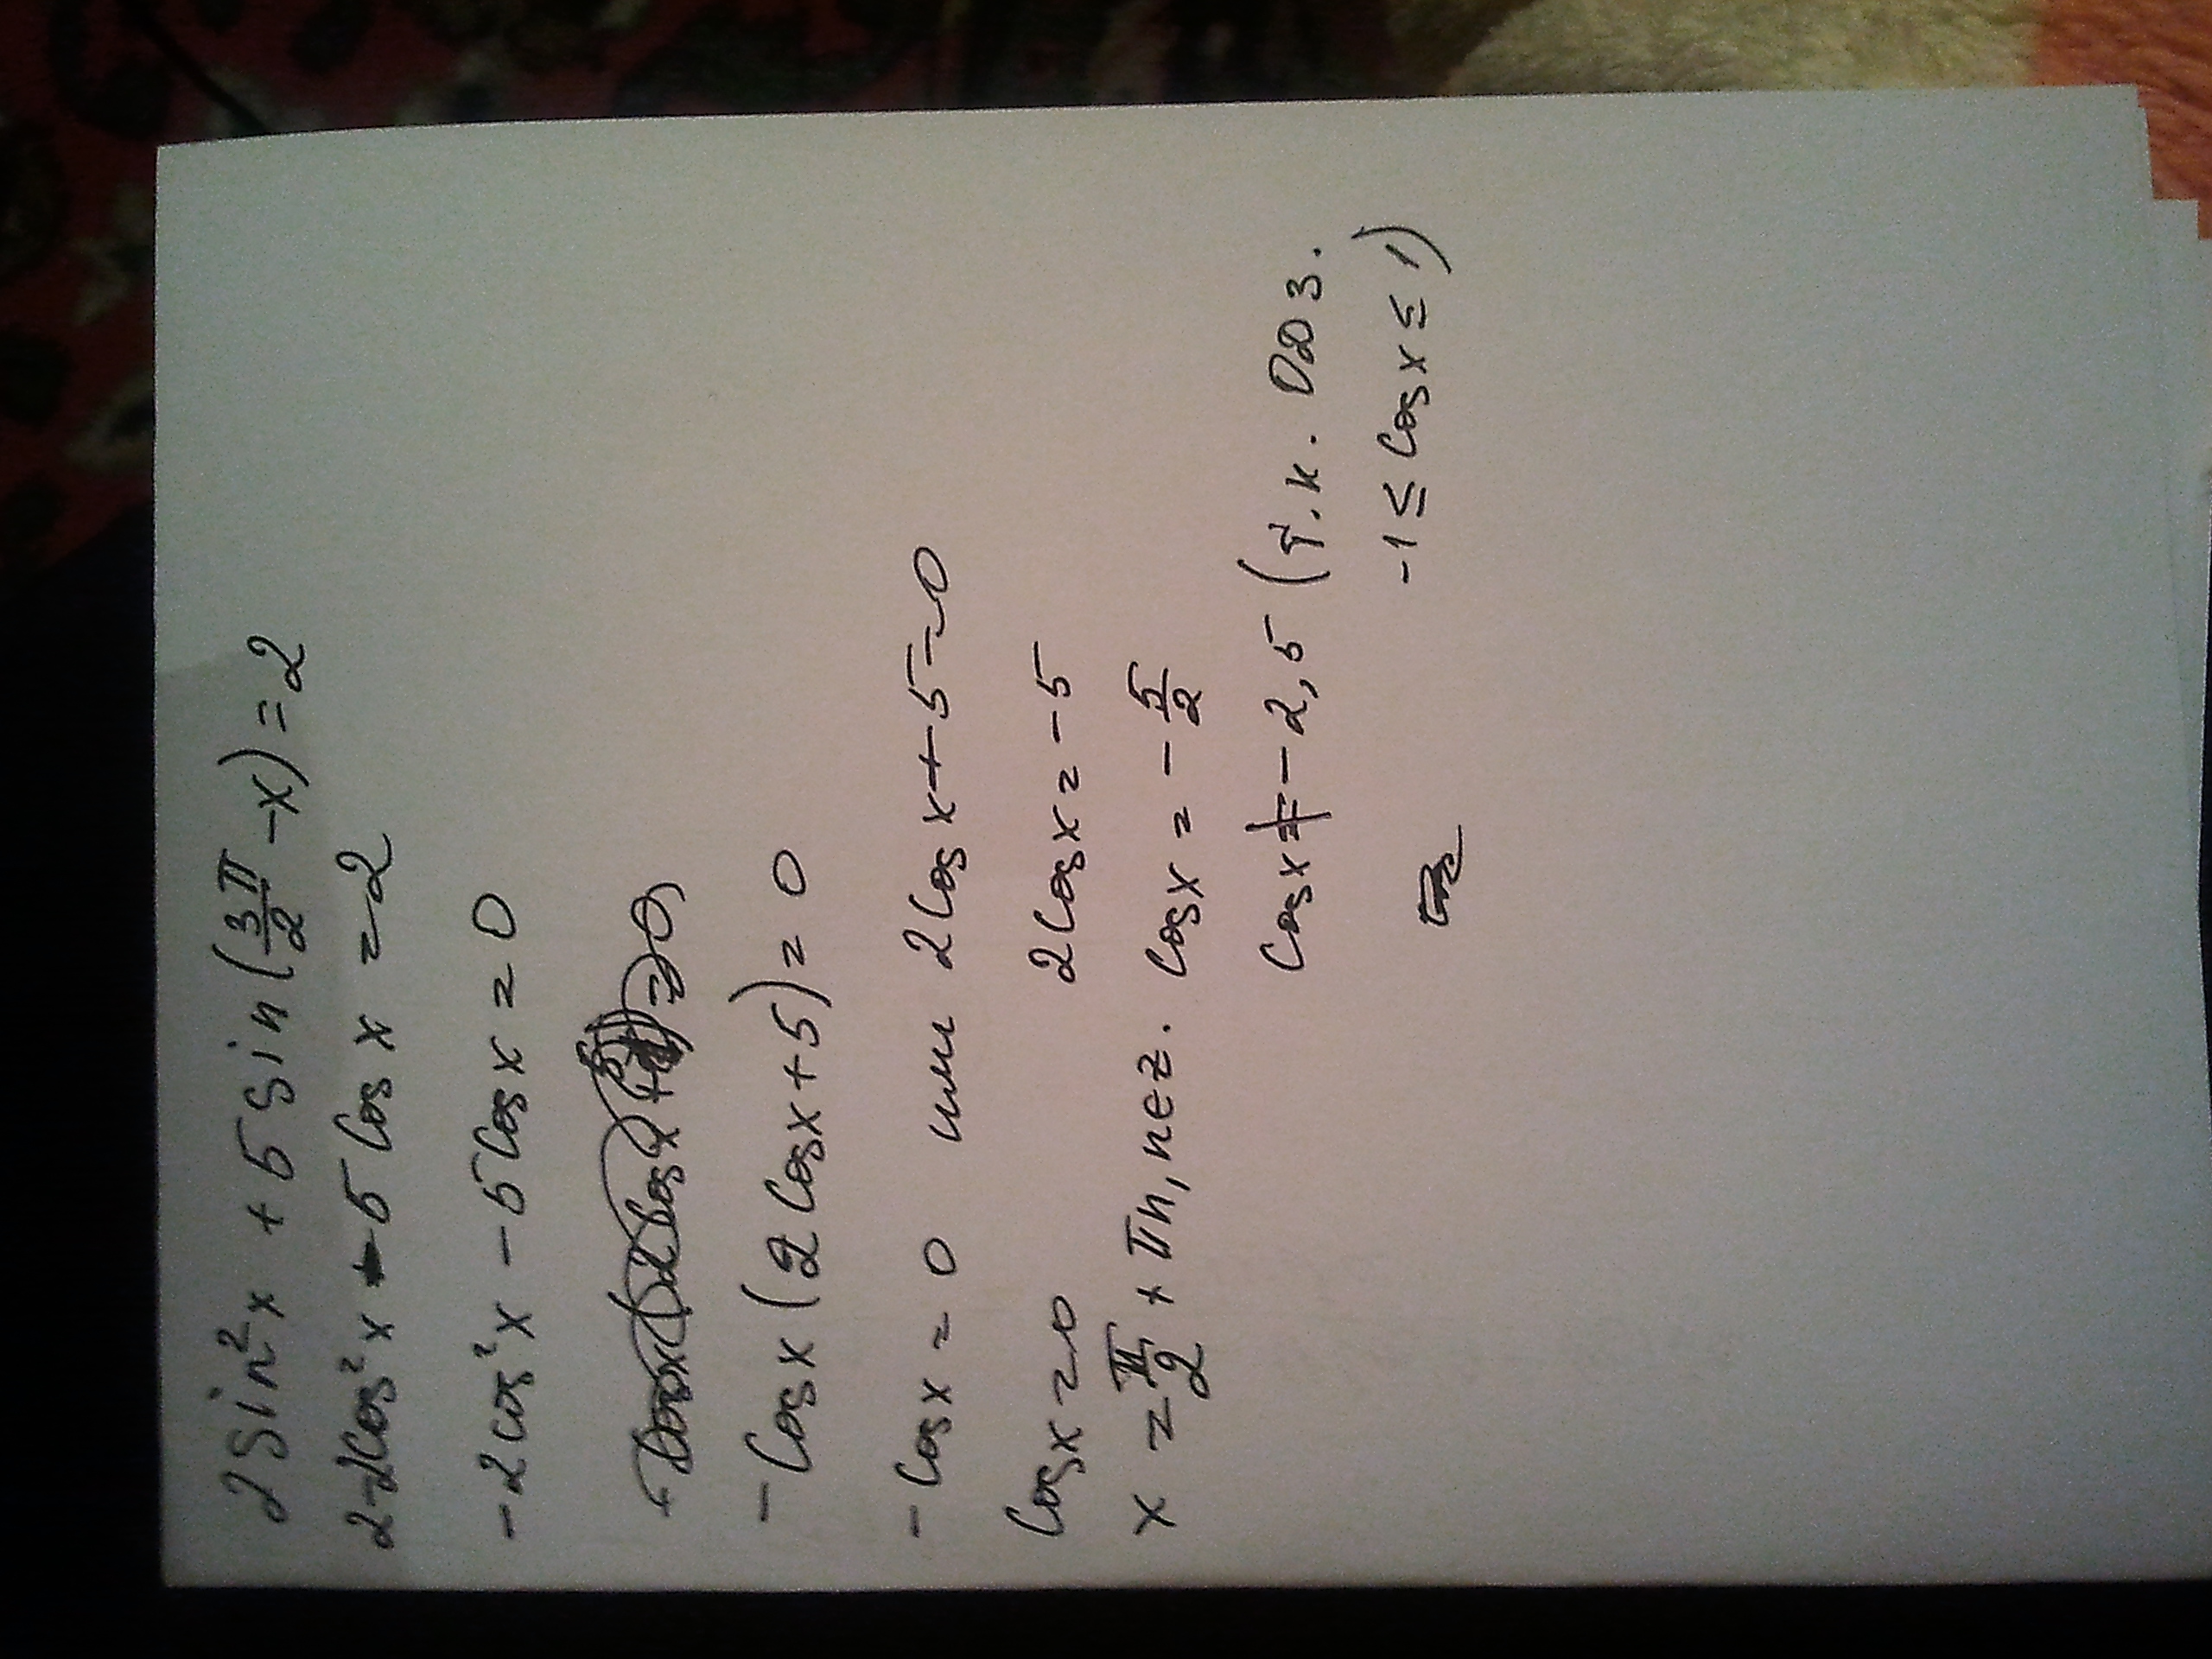 2 Sin² x + 5 Sin (3π/2 - x) = 2
2-2Cos² x - 5 Cos x = 2
-2 cos² x - 5 Cos x = 0
-Cos x (2 Cos x + 5) = 0
-Cos x = 0 или 2 Cos x + 5 = 0
Cos x = 0 2 Cos x = -5
x = π/2 + πn, n∈z. Cos x = - 5/2
Cos x ≠ - 2,5 (т.к. ОДЗ.
-1 ≤ Cos x ≤ 1)